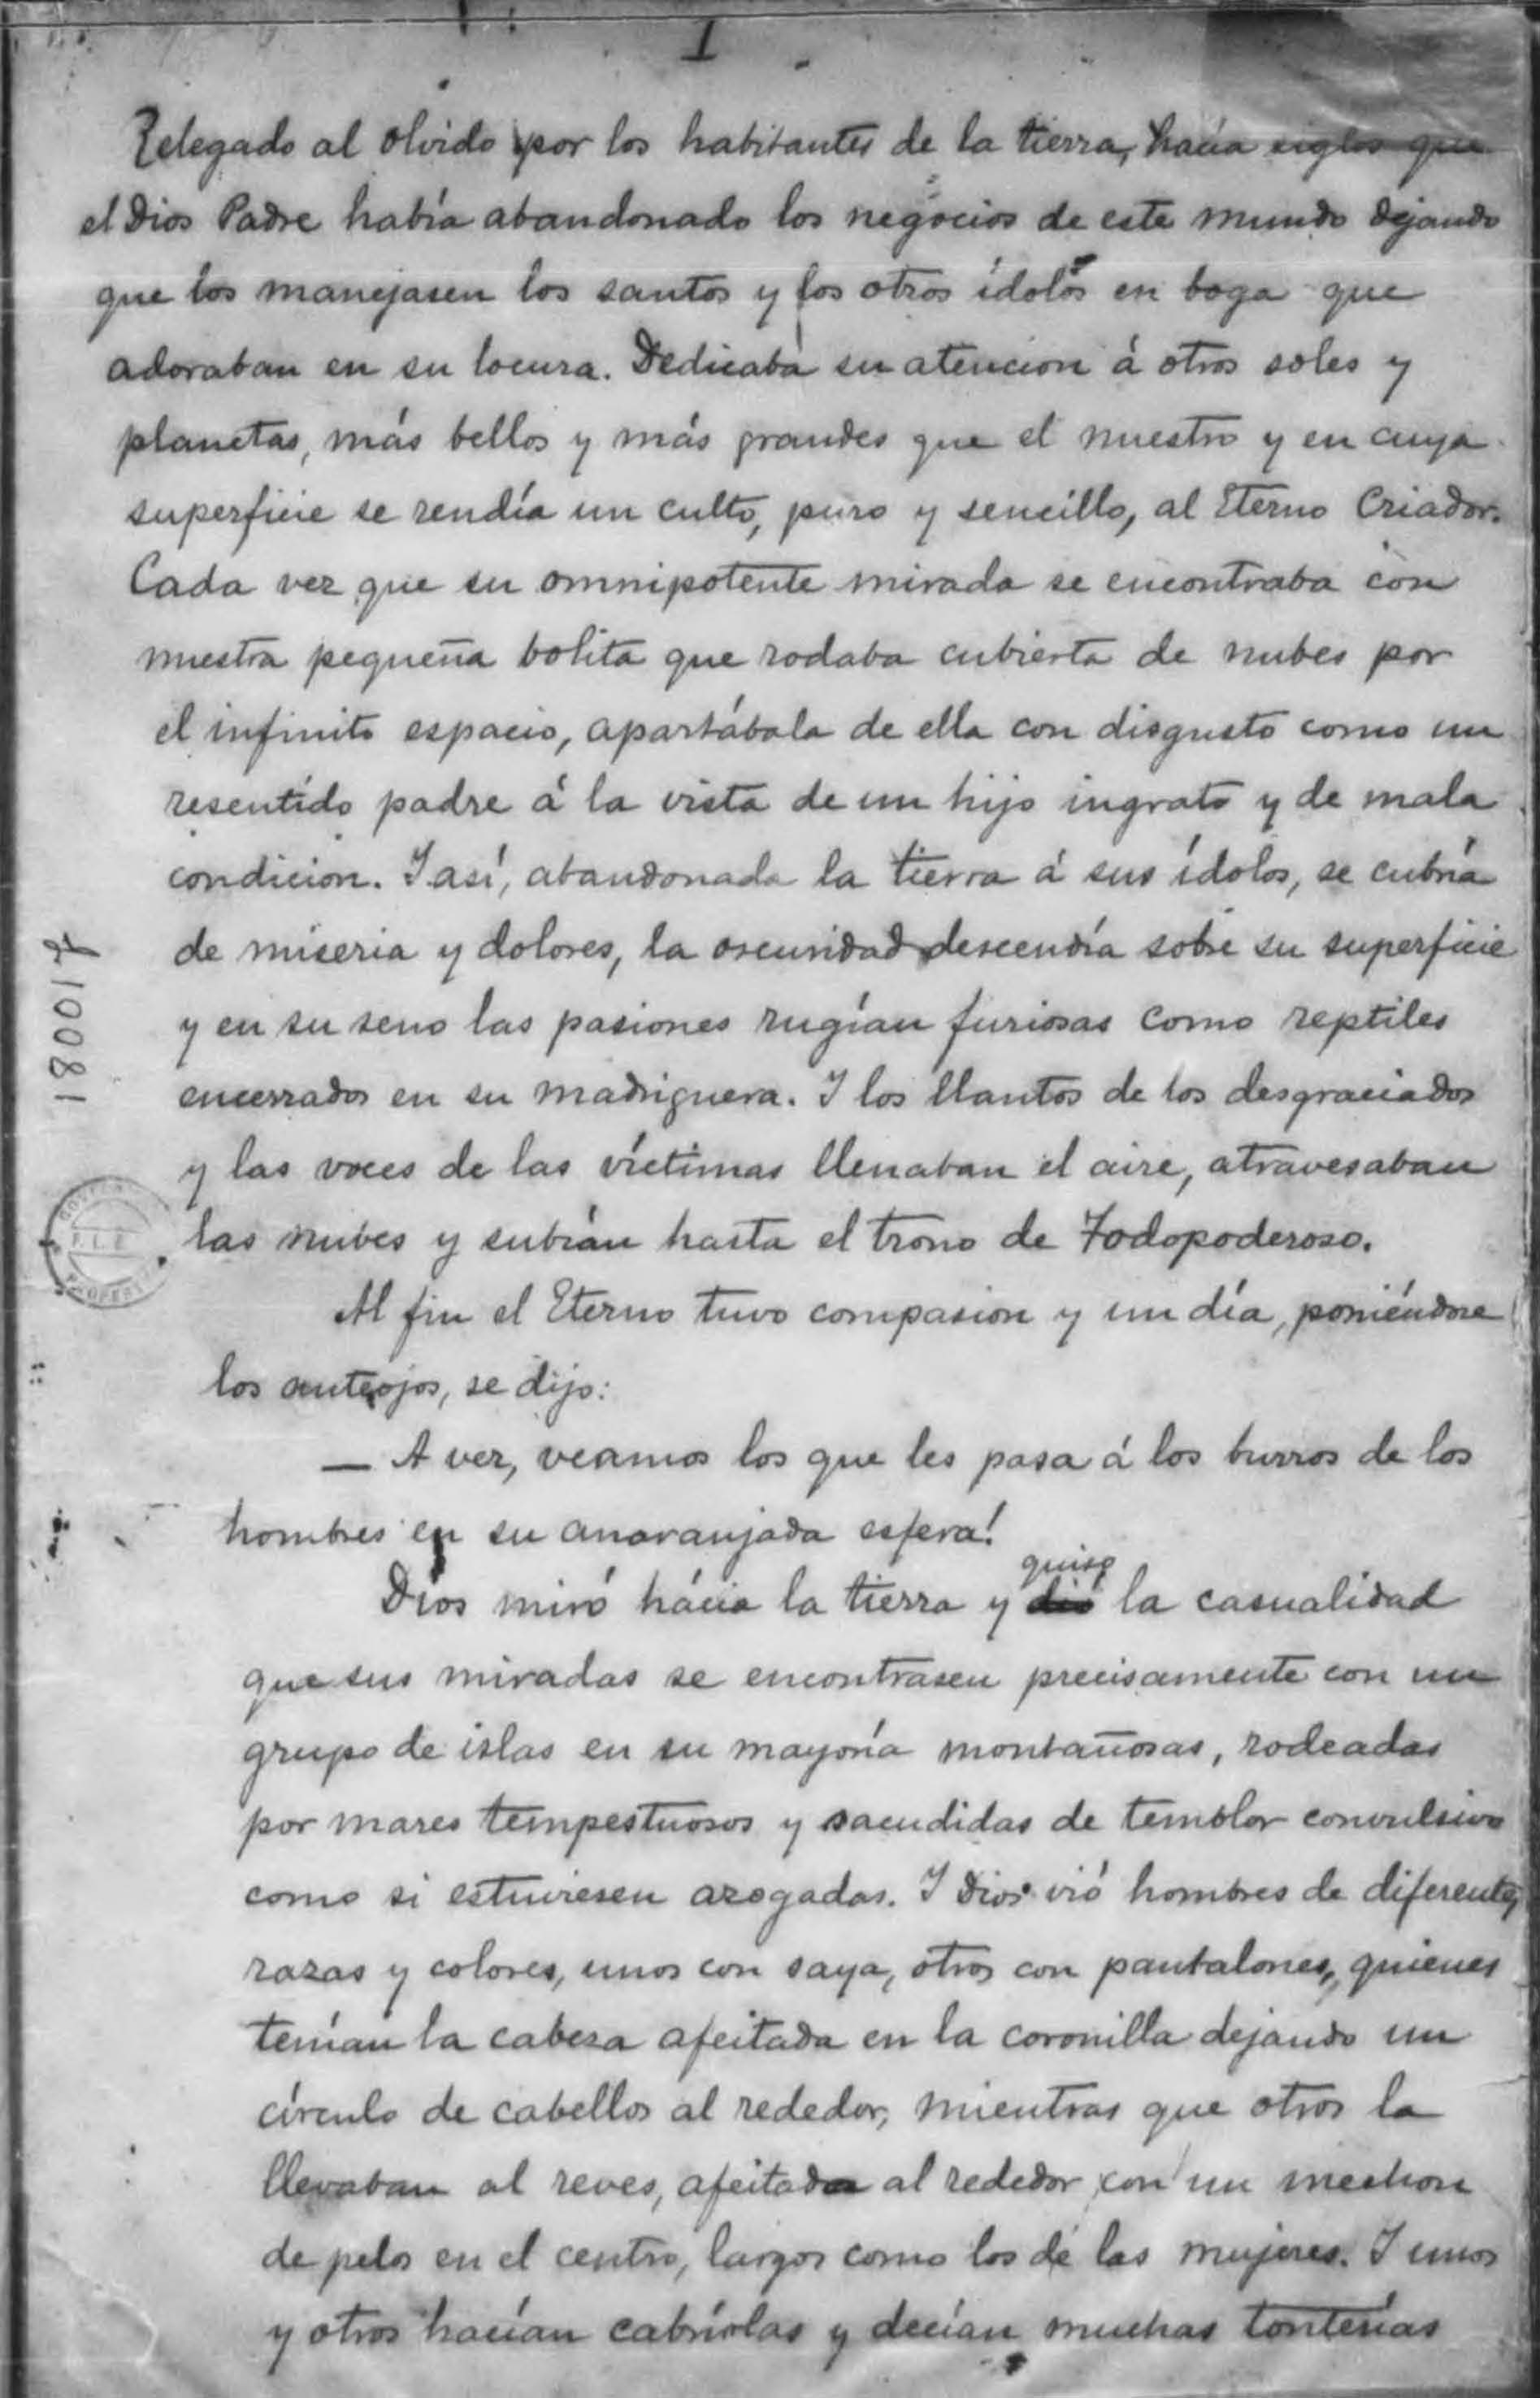 I
Relegado al olvido por los habitantes de la tierra, hacía siglos que
el Dios Padre había abandonado los negocios de este mundo dejando
que los manejasen los santos y los otros ídolos en boga que
adoraban en su locura. Dedicaba su atencion á otros soles y
planetas, más bellos y más grandes que el nuestro y en cuya
superficie se rendía un culto, puro y sencillo, al Eterno Criador.
Cada vez que su omnipotente mirada se encontraba con
nuestra pequeña bolita que rodaba cubierta de nubes por
el infinito espacio, apartábala de ella con disgusto como un
resentido padre á la vista de un hijo ingrato y de mala
condicion. I así, abandonada la tierra á sus ídolos, se cubría
de miseria y dolores, la oscuridad descendía sobre su superficie
y en su seno las pasiones rugían furiosas como reptiles
encerrados en su madriguera. I los llantos de los desgraciados
y las voces de las víctimas llenaban el aire, atravesaban
las nubes y subían hasta el trono de Todopoderoso.
Al fin el Eterno tuvo compasion y un día, poniéndose
los anteojos, se dijo:
— A ver, veamos los que les pasa á los burros de los
hombres en su anaranjada esfera!
Dios miró hácia la tierra y dió quiso la casualidad
que sus miradas se encontrasen precisamente con un
grupo de islas en su mayoría montañosas, rodeadas
por mares tempestuosos y sacudidas de temblor convulsivo
como si estuviesen azogadas. I Dios vió hombres de diferentes
razas y colores, unos con saya, otros con pantalones, quienes
tenían la cabeza afeitada en la coronilla dejando un
círculo de cabellos al rededor, mientras que otros la
llevaban al reves, afeitada al rededor con un mechon
de pelos en el centro, largos como los de las mujeres. I unos
y otros hacían cabríolas y decían muchas tonterías
18001&
PROPERTY